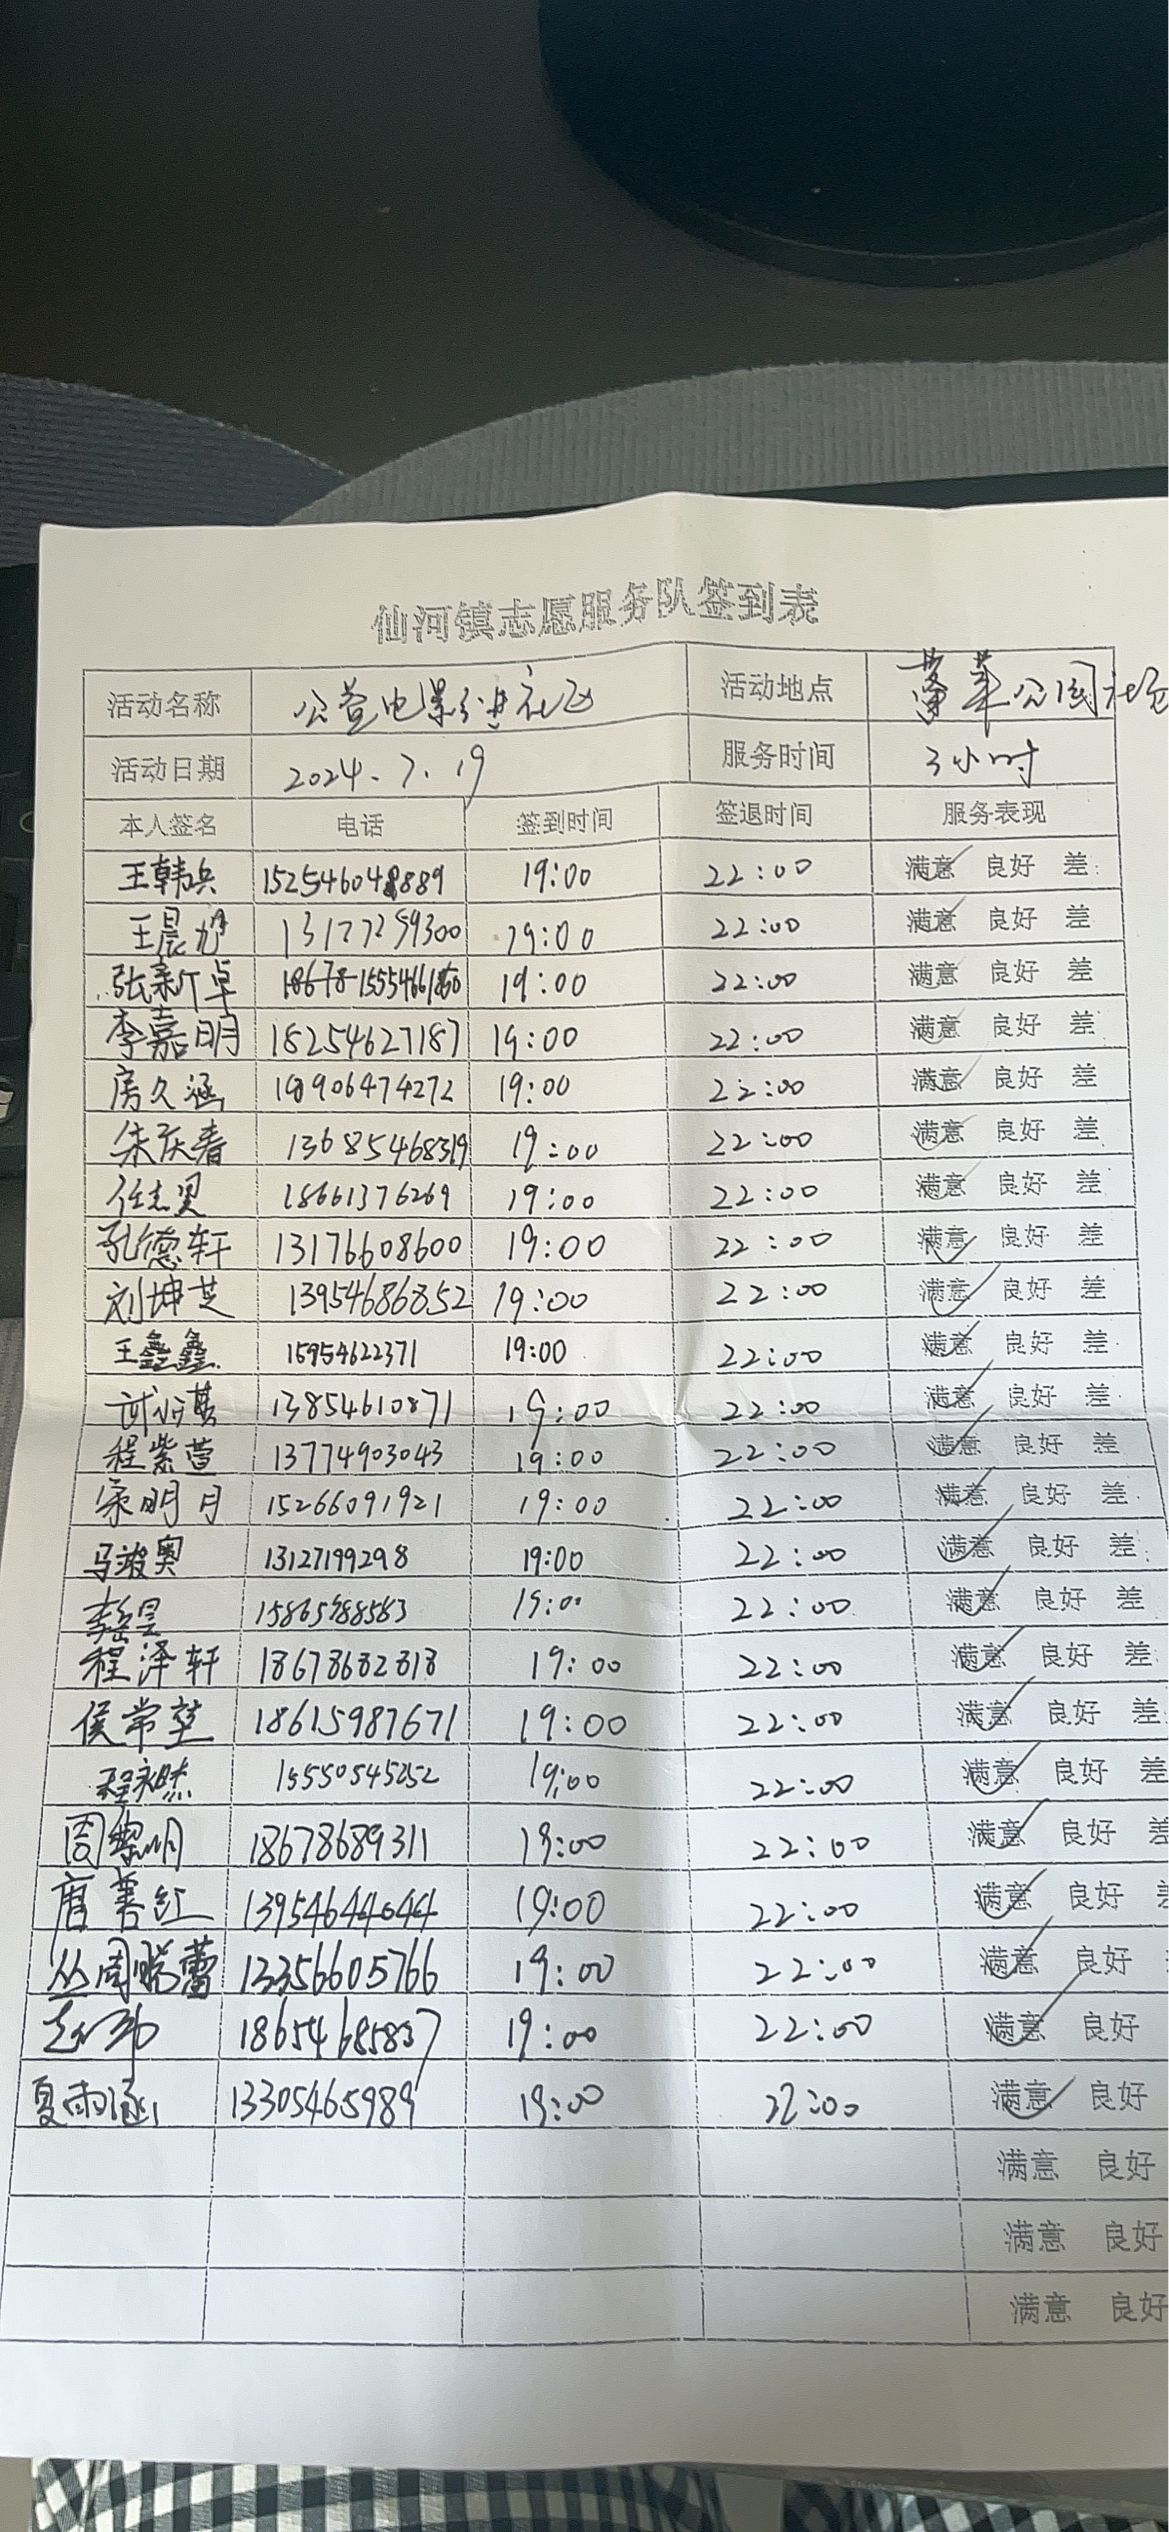 仙河镇志愿服务队签到表
活动名称 公益电影进社区 活动地点 蓬莱公园社区
活动日期 2024.7.19 服务时间 3小时
本人签名 电话 签到时间 签退时间 服务表现
王韩兵 19:00 22:00 满意 良好 差
王晨旭 13177259300 19:00 22:00 满意 良好 差
张新卓 19:00 22:00 满意 良好 差
李嘉明 18254627187 19:00 22:00 满意 良好 差
房久涵 18906474272 19:00 22:00 满意 良好 差
朱庆春 13685468319 19:00 22:00 满意 良好 差
任志昊 18661376269 19:00 22:00 满意 良好 差
孔德轩 13176608600 19:00 22:00 满意 良好 差
刘坤芝 13954686852 19:00 22:00 满意 良好 差
王鑫鑫 15954622371 19:00 22:00 满意 良好 差
13854610871 19:00 22:00 满意 良好 差
程紫萱 13774903043 19:00 22:00 满意 良好 差
宋明月 15266091921 19:00 22:00 满意 良好 差
马竣奥 13127199298 19:00 22:00 满意 良好 差
19:00 22:00 满意 良好 差
程泽轩 18678682818 19:00 22:00 满意 良好 差
侯常堃 18615987671 19:00 22:00 满意 良好 差
程永杰 15550545252 19:00 22:00 满意 良好 差
周黎明 18678689311 19:00 22:00 满意 良好 差
唐善红 13954644044 19:00 22:00 满意 良好
丛周晓蕾 13356605766 19:00 22:00 满意 良好
18654685837 19:00 22:00 满意 良好
夏雨涵 13305465989 19:00 22:00 满意 良好
满意 良好
满意 良好
满意 良好